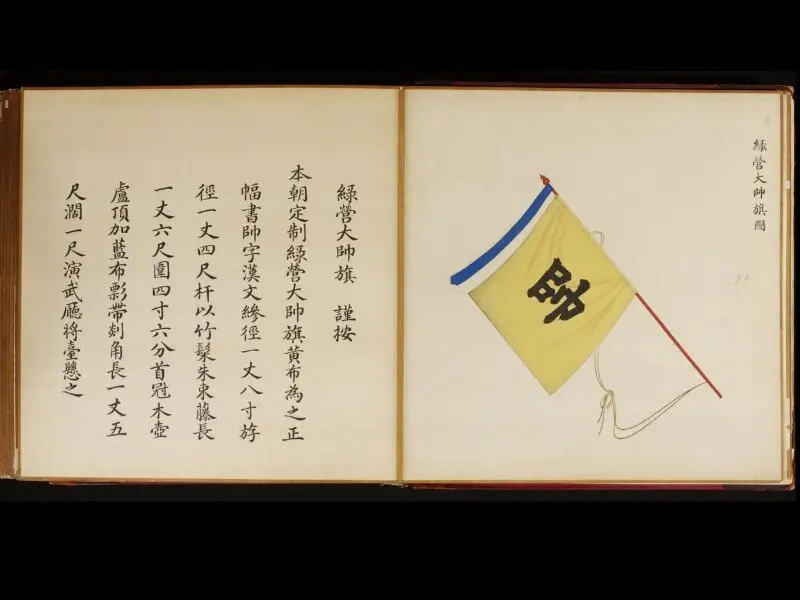 綠營大帥旗圖
帥
綠營大帥旗 謹按
本朝定制綠營大帥旗黃布為之正
幅書帥字漢文縿徑一丈八寸斿
徑一丈四尺杆以竹髹朱束藤長
一丈六尺圍四寸六分首冠木壺
盧頂加藍布彯帶剡角長一丈五
尺闊一尺演武廳將臺懸之